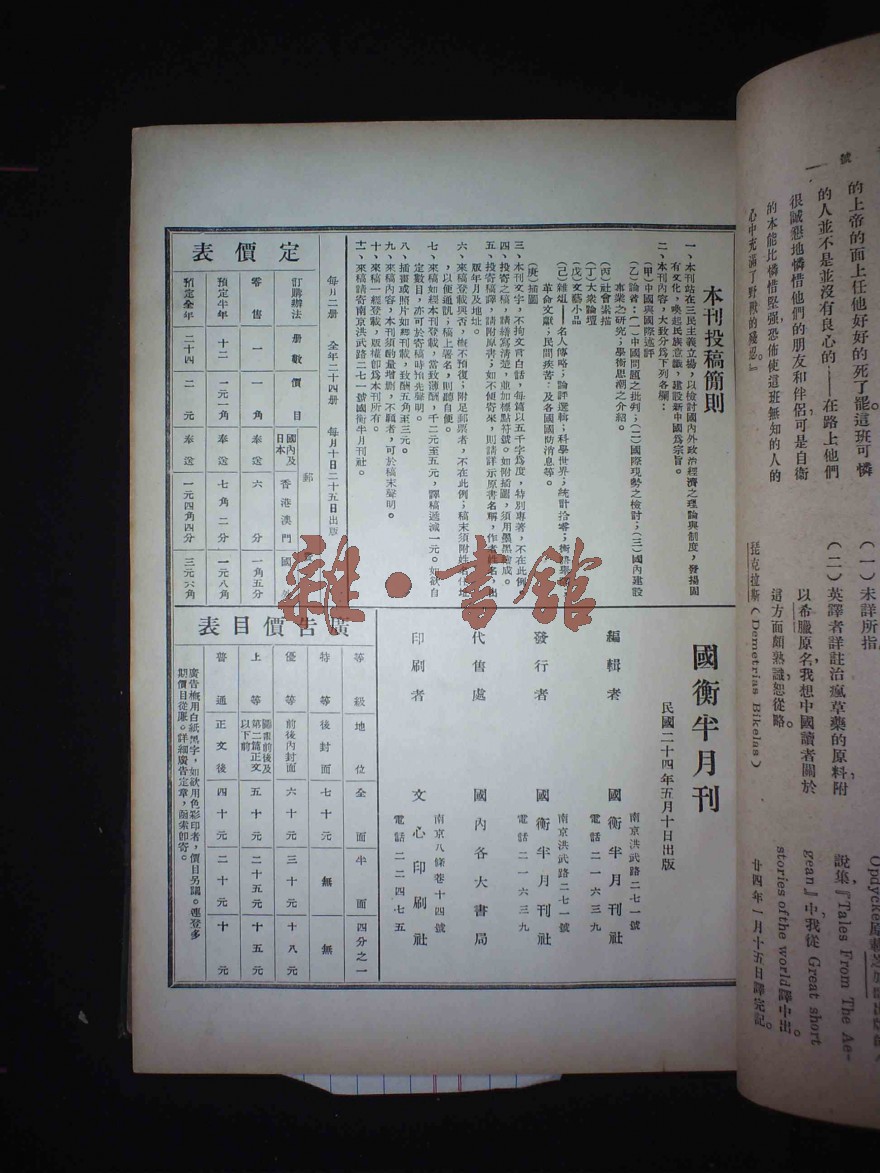 號
的上帝的面上任他好好的死了罷。這班可憐
的人並不是並沒有良心的——在路上他們
很誠懇地憐惜他們的朋友和伴侶可是自衛
的本能比憐惜堅强恐怖使這班無知的人的
心中充滿了野獸的殘忍。』
(一)未詳所指
(二)英譯者詳註治瘋草藥的原料附
以希臘原名,我想中國讀者關於
這方面頗熟識,恕從略。
琵克拉斯(Demetrias Bikelas)
說集『Tales From The Ae-
gean』中,我從 Great short
stories of the world譯中出。
廿四年一月十五日譯完記。
本刊投稿簡則
一、本刊站在三民主義立場,以檢討國內外政治經濟之理論與制度,發揚固
有文化,喚起民族意識,建設新中國爲宗旨。
二、本刊內容,大致分爲下列各欄:
(甲)中國與國際述評
(乙)論著:(一)中國問題之批判;(二)國際現勢之檢討;(三)國內建設
事業之研究;學術思潮之介紹。
(丙)社會素描
(丁)大衆論壇
(戊)文藝小品
(己)雜俎——名人傳略;論評選輯;科學世界;統計拾零;
革命文獻;民間疾苦;及各國國防消息等。
(庚)插圖
三、本刊文字,不拘文言白話,每篇以五千字爲度,特別專著,不在此例
四、投寄之稿,請繕寫清楚,並加標點符號。如附插圖,須用墨黑繪成。
五、投寄譯稿,請附原書;如不便寄來,則請詳示原書名稱,作者姓名,出
版年月及地址。
六、來稿登載與否,概不預復;附足郵票者,不在此例;稿末須附姓名住址
,以便通訊;稿上署名,則聽自便。
七、來稿如經本刊登載,當致薄酬,千二元至五元,譯稿遞減一元。如欲自
定數目,亦可於寄稿時預先聲明。
八、插畫或照片如經刊載,致酬五角至三元。
九、來稿內容,本刊須酌量增删,不願者,可於稿末聲明。
十、來稿一經登載,版權即爲本刊所有。
十一、來稿請寄南京洪武路二七一號國衡半月刊社。
定價表
每月二册 全年二十四册 每月十日二十五日出版
訂購辦法 册數 價目 郵
國內及日本 香港澳門 國
零售 一 一角 奉送 六分 一角五分
預定半年 十二 一元一角 奉送 七角二分 一元八角
預定全年 二十四 二元 奉送 一元四角四分 三元六角
國衡半月刊
民國二十四年五月十日出版
編輯者 國衡半月刊社
南京洪武路二七一號
電話二一六三九
發行者 國衡半月刊社
南京洪武路二七一號
電話二一六三九
代售處 國內各大書局
印刷者 文心印刷社
南京八條巷十四號
電話二二四七五
廣告價目表
等級 地位 全面 半面 四分之一
特等 後封面 七十元 無 無
優等 前後內封面 六十元 三十元 十八元
上等 圖畫前後及第二篇正文以下前 五十元 二十五元 十五元
普通 正文後 四十元 二十元 十元
廣告概用白紙黑字,如欲用色彩印者,價目另議。連登多
期價目從廉。詳細廣告定章,函索即寄。
雜·書館